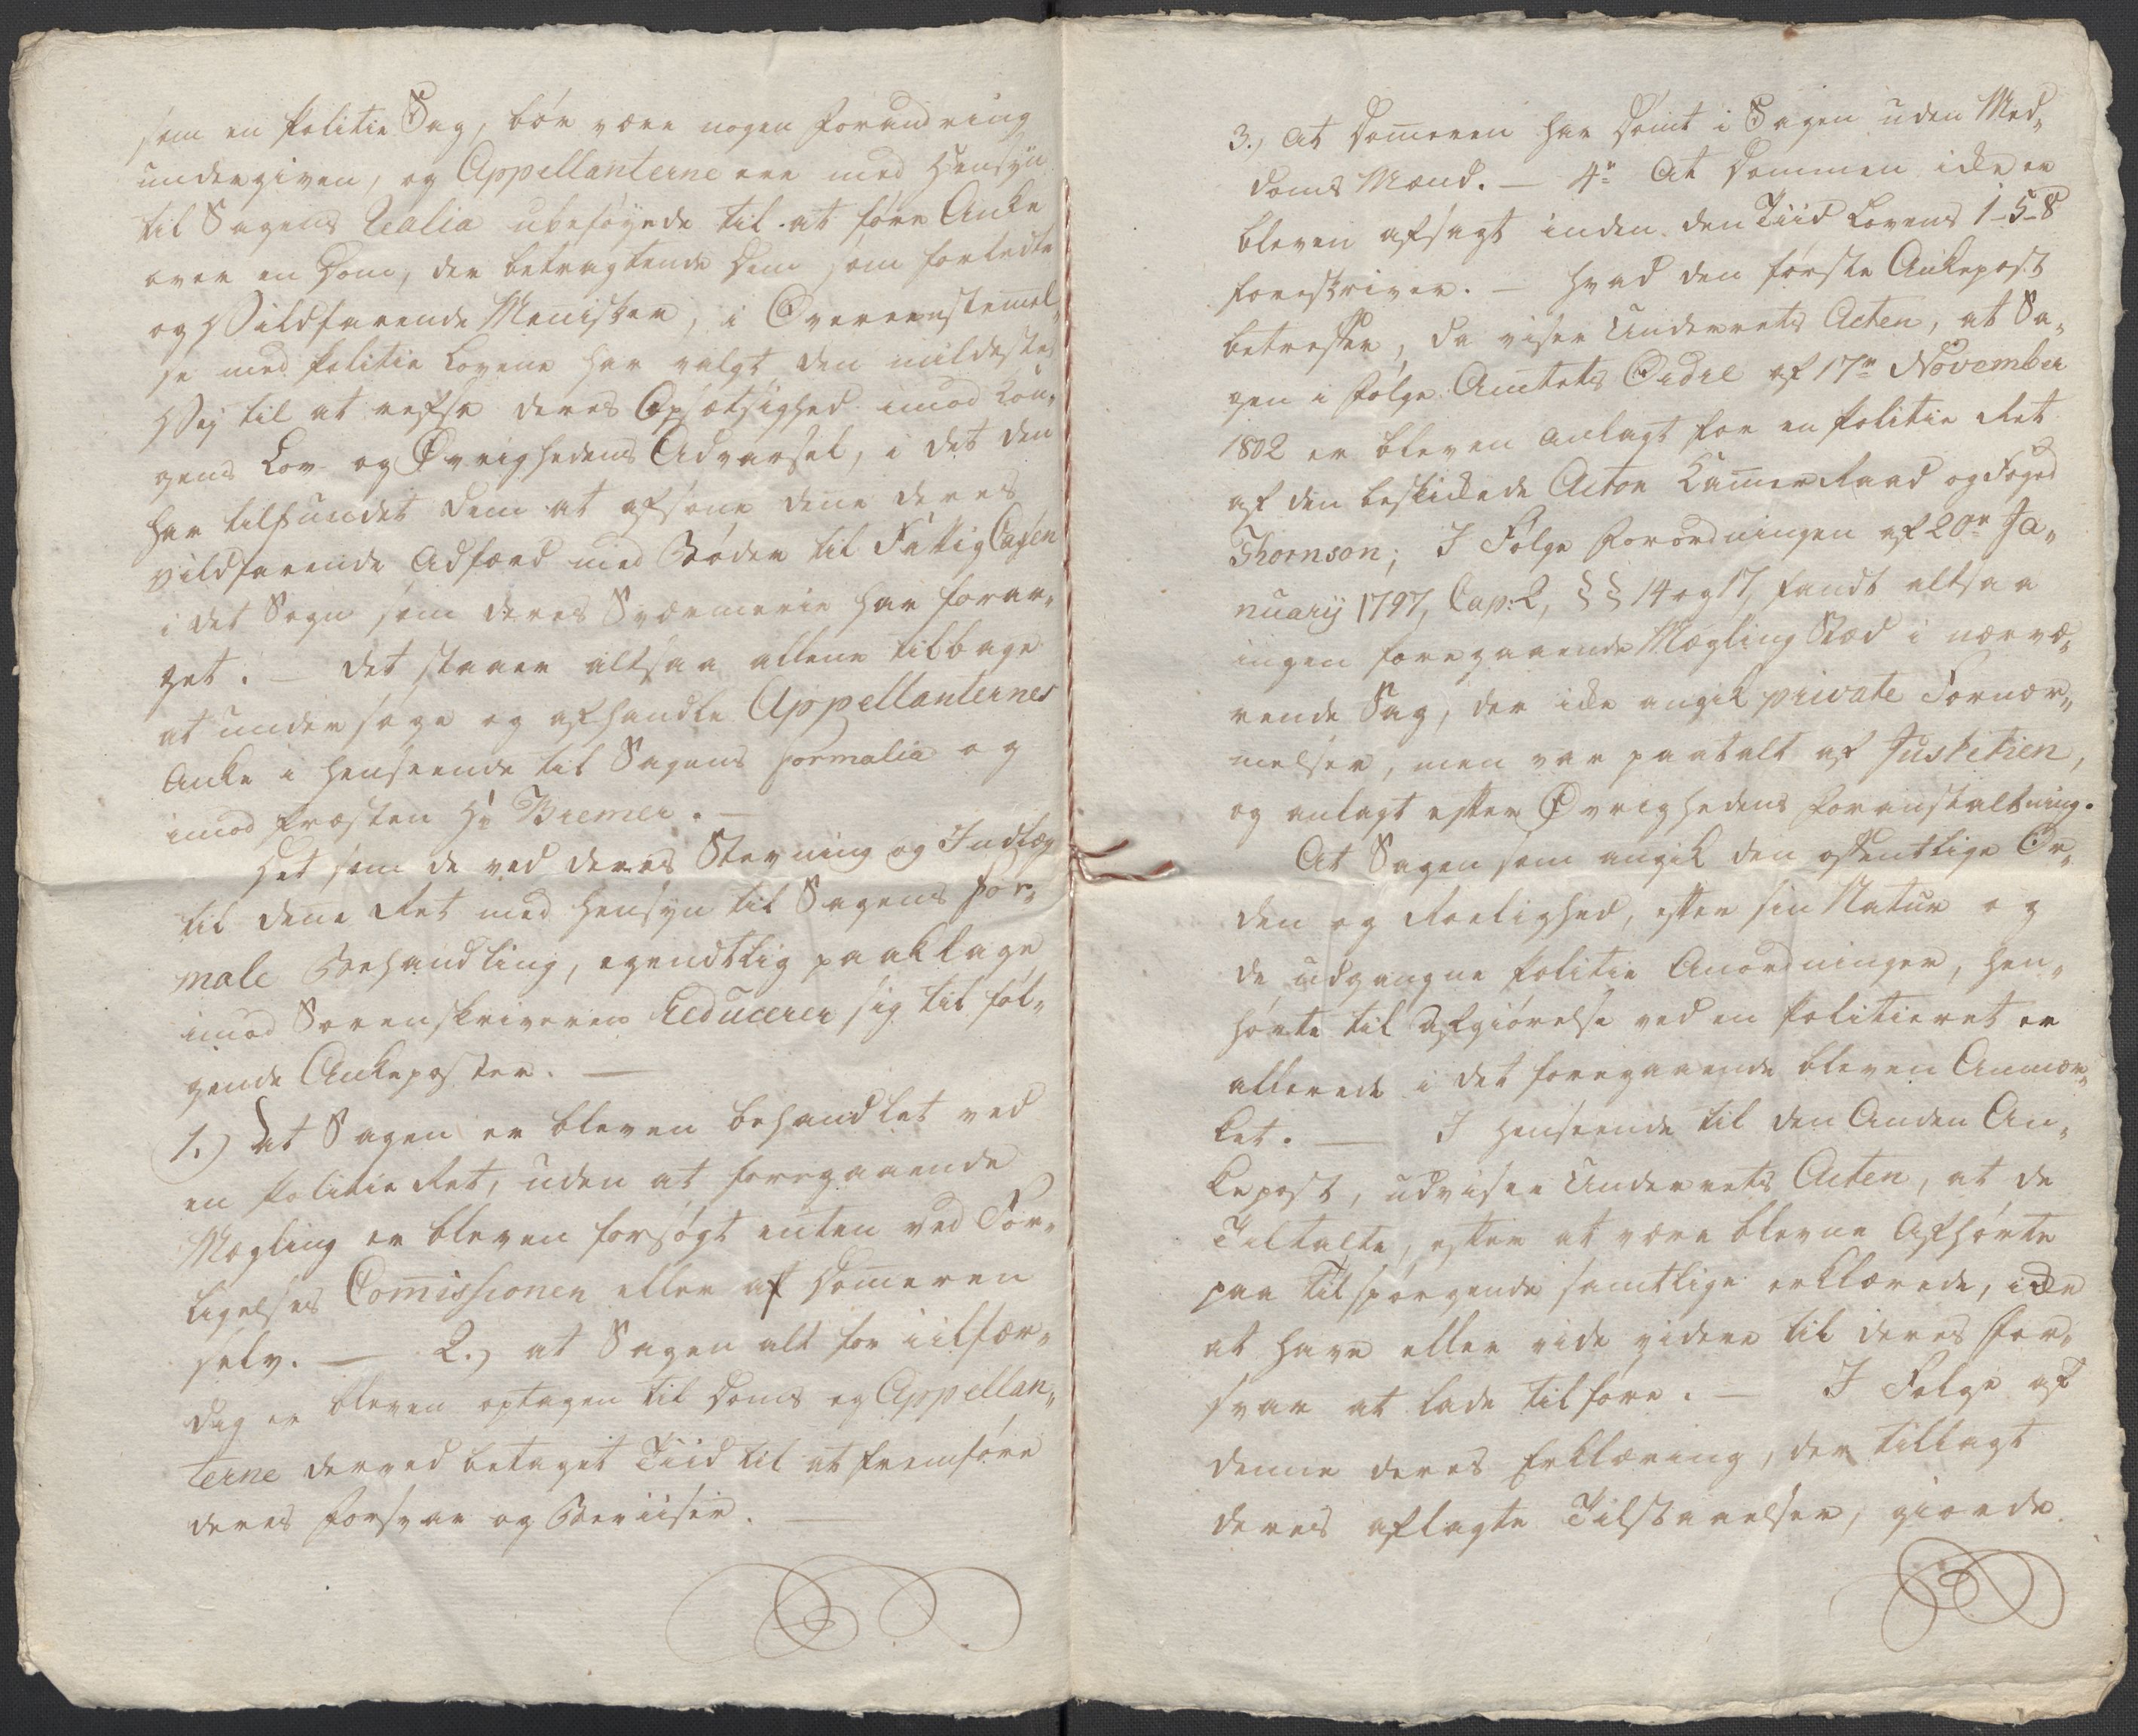 som en Politie Sag, bör være nogen Forandring
undergiven, og Appellanterne ere med Hensÿn
til Sagens Realia ubeføyede til at føre Anke
over en Dom, der betragtende Dem som forledte
og Vildfarende Menisker, i Overeenstemel„
se med Politie Lovene har valgt den mildeste
Vej til at refse deres Opsætsighed imod Kon„
gens Lov og Øvrighedens Advarsel, i det den
har tilfundet Dem at afsone dene deres
vildfarende Adfærd med Bøder til Fattig Casen
i det Sogn som deres Sværmerie har forar„
get. — Det staaer altsaa allene tilbage
at undersøge og afhandle Appellanternes
Anke i henseende til Sagens formalia og
imod Præsten Hr Bremer. —
Det som de ved deres Stevning og Indlæg
til dene Ret med Hensyn til Sagens for„
male Behandling, egendtlig paaklage
imod Sorenskriveren Reducerer sig til føl„
gende Ankeposter. —
1.) at Sagen er bleven behandlet ved
en Politie Ret, uden at foregaaende
Mægling er bleven forsøgt enten ved For„
ligelses Comissionen eller af Domeren
selv. — 2.) at Sagen alt for iilfær„
dig er bleven optagen til Doms og Appellan„
terne derved betaget Tiid til at fremføre
deres Forsvar og Beviiser. —
3.) at Domeren har Dømt i Sagen uden Med„
doms Mænd. — 4r At Dommen icke er
bleven afsagt inden den Tiid Lovens 1-5-8
foreskriver. — Hvad den første Ankepost
betreffer, da viser Underrets Acten, at Sa„
gen i Følge Amtets Ordre af 17r November
1802 er bleven anlagt for en Politie Ret
af den beskickede Actor Kamer Raad og Foged
Thornson; I Følge Forordningen af 20r Ja„
nuarij 1797, Cap: 2, §§ 14 og 17, fandt altsaa
ingen foregaaende Mægling Stæd i nærvæ„
rende Sag, der icke angik private Fornær„
melser, men var paatalt af Justitien,
og anlagt efter Øvrighedens Foranstaltning.
At Sagen som angik den offentlige Or„
den og Roelighed, efter sin Natur og
de udgangne Politie Anordninger, hen„
hørte til Afgiørelse ved en Politieret er
allerede i det foregaaende bleven Anmær„
ket. — I Henseende til den Anden An„
kepost, udviser Underrets Acten, at de
Tiltalte, efter at være blevne Afhørte
paa tilspørgende samtlige erklærede, icke
at have eller vide videre til deres For„
svar at lade tilføre. — I Følge af
denne deres Erklæring, der tillagt
deres aflagte Tilstaaelser, giorde